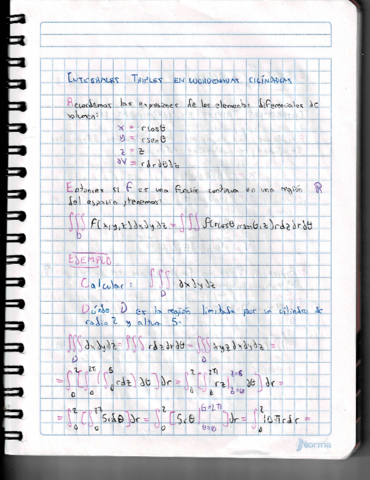 INTEGRALES TRIPLES EN COORDENADAS CILÍNDRICAS
Recordemos las expresiones de los elementos diferenciales de
volumen:
x = rcosθ
y = rsenθ
z = z
dV = rdrdθdz
Entonces si F es una función continua en una región R
del espacio, tenemos:
∭_D f(x,y,z)dxdydz = ∭ f(rcosθ, rsenθ, z)rdzdrdθ
EJEMPLO
Calcular: ∭_D dxdydz
Dónde D es la región limitada por un cilindro de
radio 2 y altura 5.
∭_D dxdydz = ∭_D rdzdθdr = ∭_D xyzdxdydz =
= ∫_0^2 [∫_0^2π [∫_0^5 rdz] dθ] dr = ∫_0^2 [∫_0^2π [rz|_z=0^z=5] dθ] dr =
= ∫_0^2 [∫_0^2π 5rdθ] dr = ∫_0^2 [5rθ|_θ=0^θ=2π] dr = ∫_0^2 10πrdr =
norma